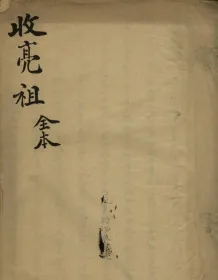 收亮祖全本